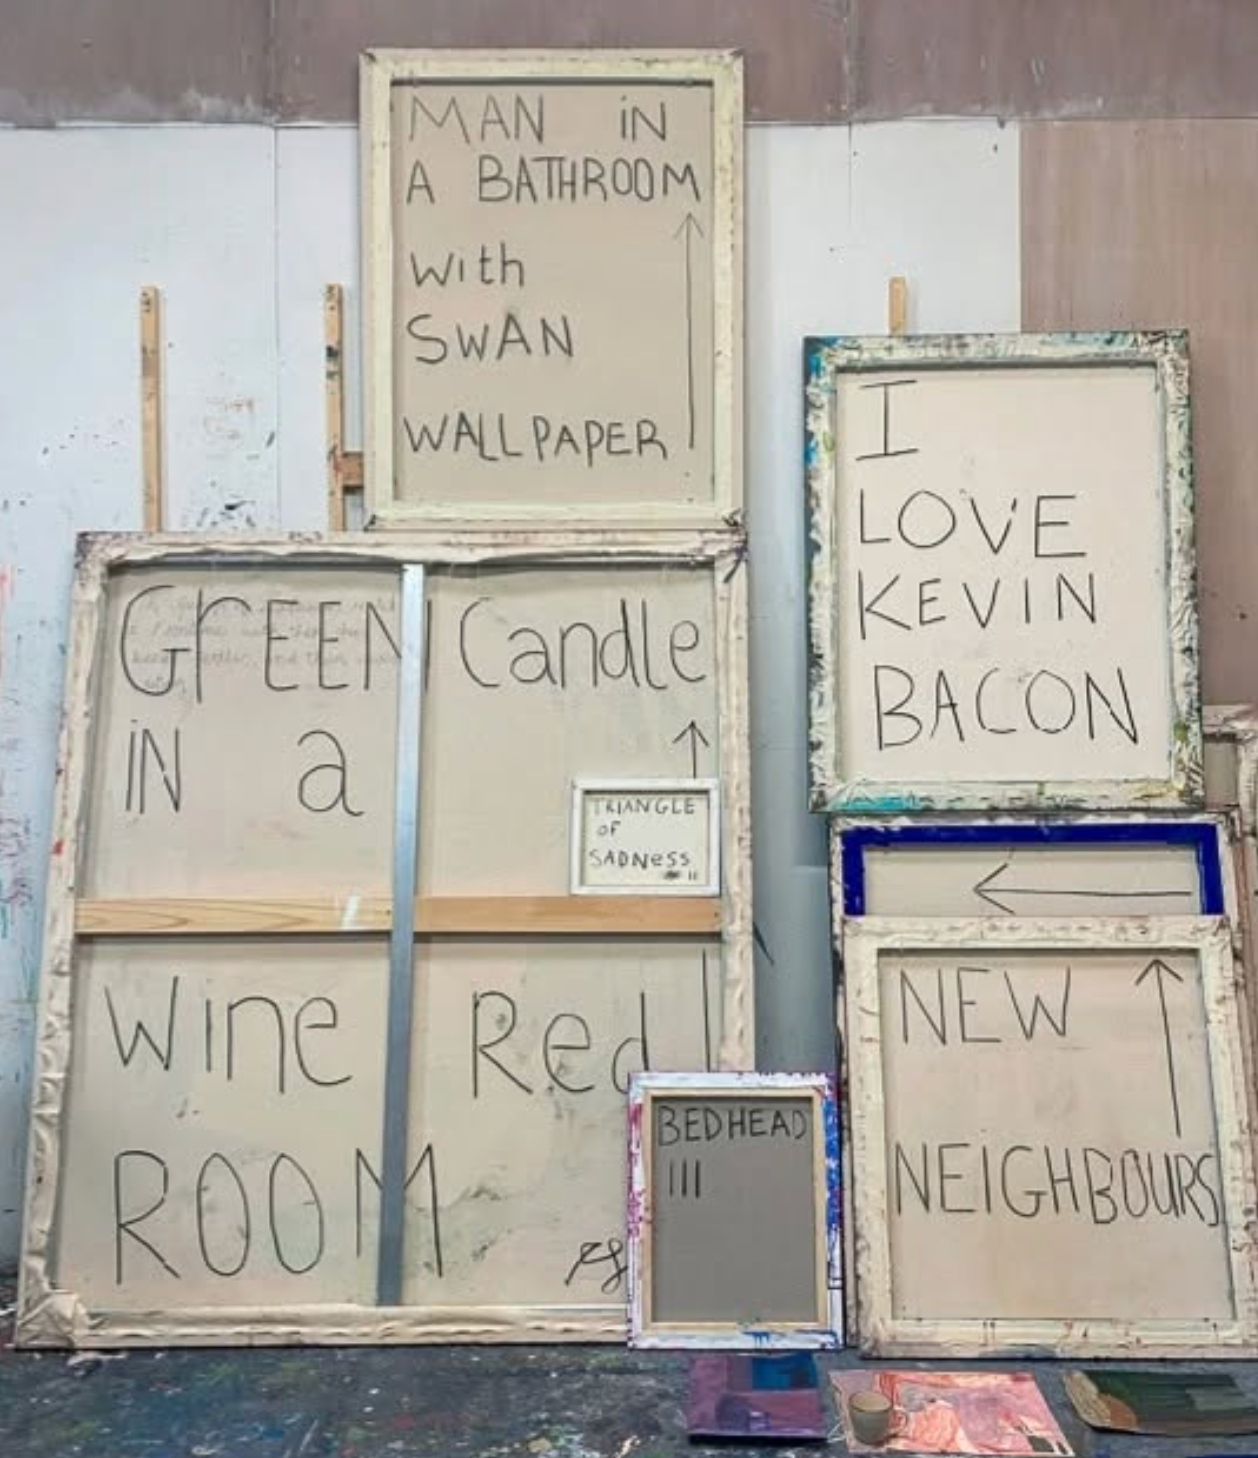 MAN iN
A BATHROOM
with
SWAN
WALLPAPER
GrEEN Candle
iN a
Wine Red
ROOM
TRIANGLE
OF
SADNeSS
II
I
LOVE
KEVIN
BACON
NEW
NEIGHBOURS
BEDHEAD
III